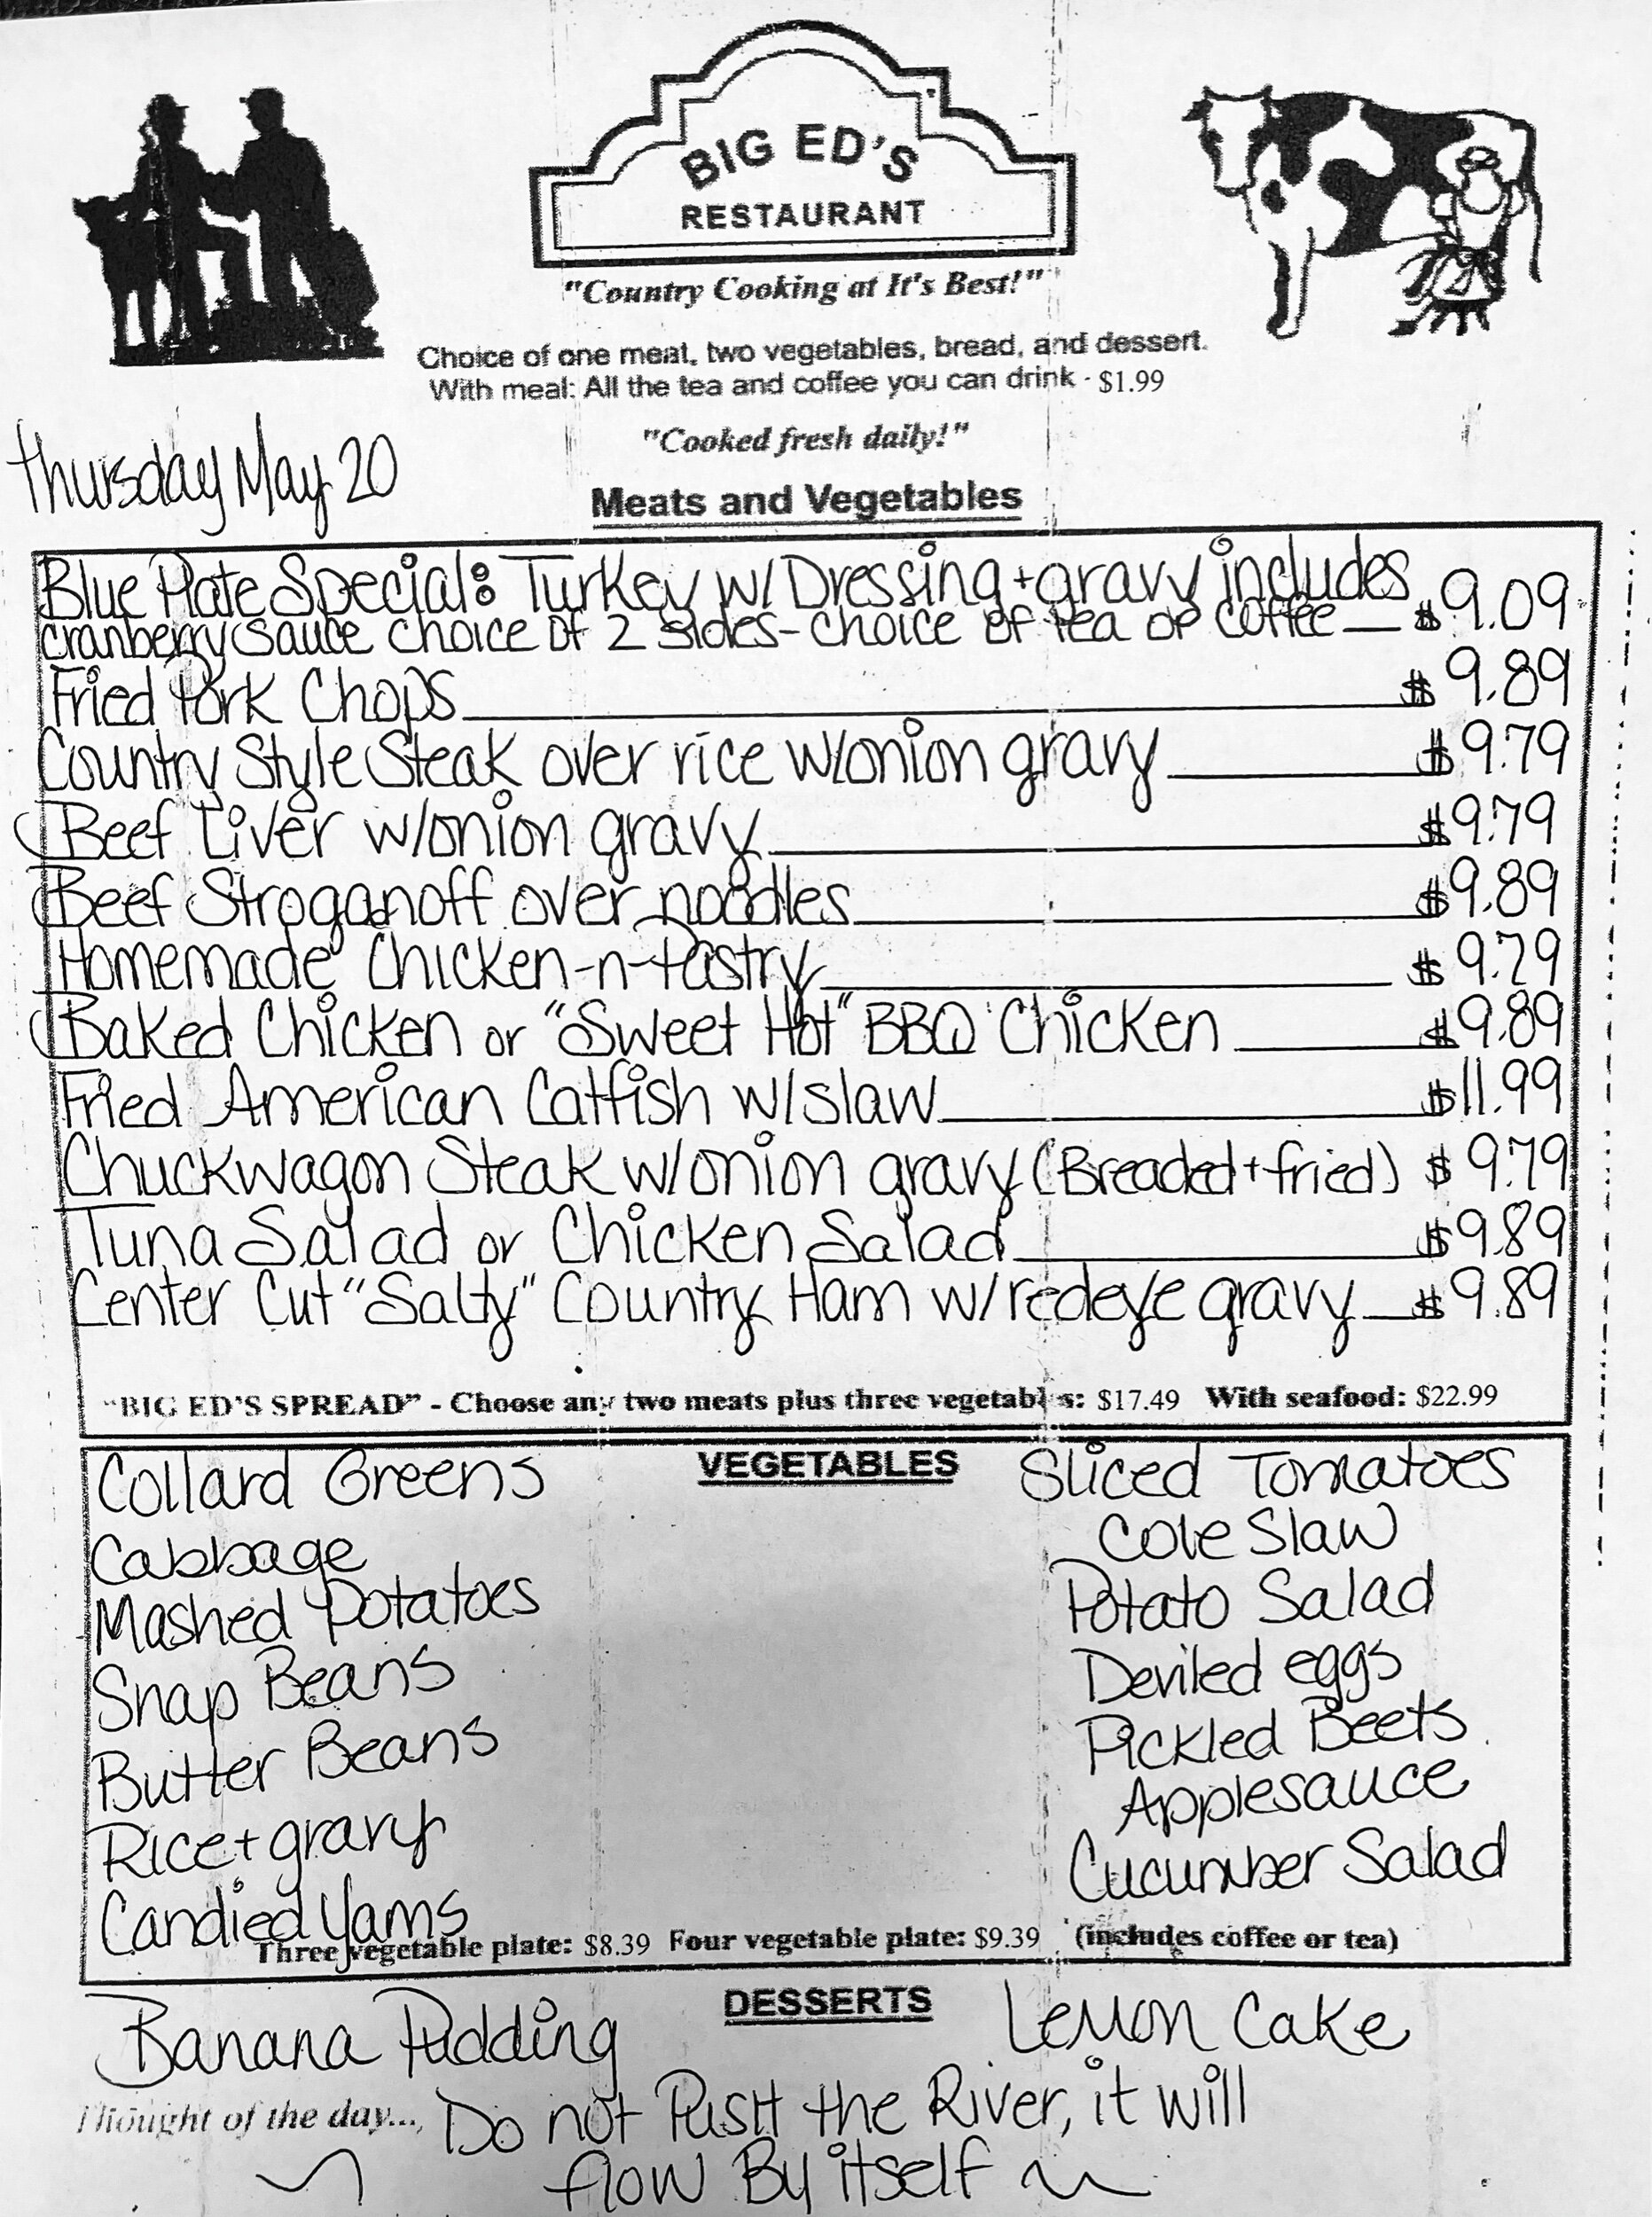 BIG ED'S
RESTAURANT
"Country Cooking at It's Best!"
Choice of one meat, two vegetables, bread, and dessert.
With meal: All the tea and coffee you can drink - $1.99
"Cooked fresh daily!"
Thursday May 20
Meats and Vegetables
Blue Plate Special: Turkey w/ Dressing + gravy includes
cranberry sauce choice of 2 sides - choice of tea or coffee $9.09
Fried Pork Chops $9.89
Country Style Steak over rice w/onion gravy $9.79
Beef Liver w/onion gravy $9.79
Beef Stroganoff over noodles $9.89
Homemade Chicken-n-Pastry $9.79
Baked Chicken or "Sweet Hot" BBQ Chicken $9.89
Fried American Catfish w/slaw $11.99
Chuckwagon Steak w/onion gravy (Breaded + fried) $9.79
Tuna Salad or Chicken Salad $9.89
Center Cut "Salty" Country Ham w/ redeye gravy $9.89
"BIG ED'S SPREAD" - Choose any two meats plus three vegetables: $17.49 With seafood: $22.99
VEGETABLES
Collard Greens
Cabbage
Mashed Potatoes
Snap Beans
Butter Beans
Rice + gravy
Candied Yams
Sliced Tomatoes
Cole Slaw
Potato Salad
Deviled eggs
Pickled Beets
Applesauce
Cucumber Salad
Three vegetable plate: $8.39 Four vegetable plate: $9.39 (includes coffee or tea)
DESSERTS
Banana Pudding
Lemon Cake
Thought of the day..., Do not Push the River, it will
flow By itself